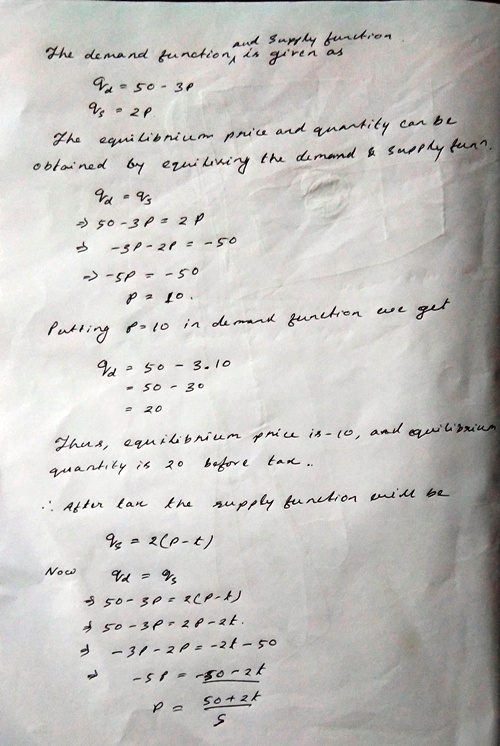 The demand function and supply function is given as
qd = 50 - 3P
qs = 2P
The equilibrium price and quantity can be
obtained by equilising the demand & supply funn.
qd = qs
⇒ 50 - 3P = 2P
⇒ -3P - 2P = -50
⇒ -5P = -50
P = 10.
Putting P = 10 in demand function we get
qd = 50 - 3.10
= 50 - 30
= 20
Thus, equilibrium price is -10, and equilibrium
quantity is 20 before tax..
∴ After tax the supply function will be
qs = 2(P - t)
Now qd = qs
⇒ 50 - 3P = 2(P - t)
⇒ 50 - 3P = 2P - 2t.
⇒ -3P - 2P = -2t - 50
⇒ -5P = -50 - 2t
P = 50 + 2t
5